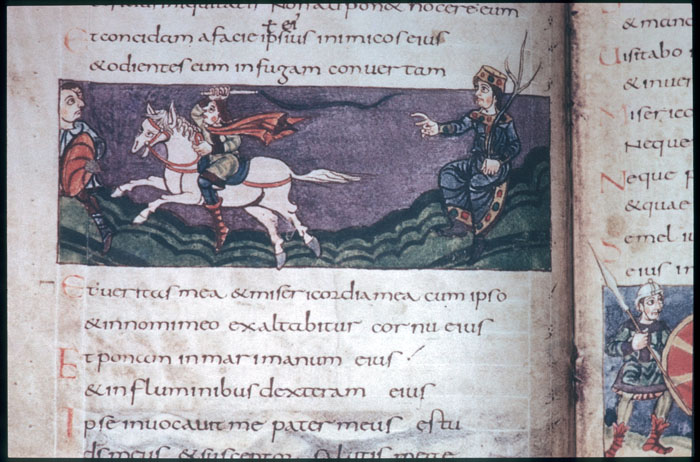 iniquitatis Non adpon& nocere eum
ei
Et concidam a facie ipsius inimicos eius
& odientes eum in fugam conuertam
Et ueritas mea & misericordia mea cum ipso
& in nomi meo exaltabitur cornu eius
Et poncon in mari manum eius
& in fluminibus dexteram eius
Ipse inuocauit me pater meus es tu
ds meus & susceptor salutis meae
& mand
Uisitabo
& inuer
Misericor
Neque
Neque p
& quae
Semel iu
eius in